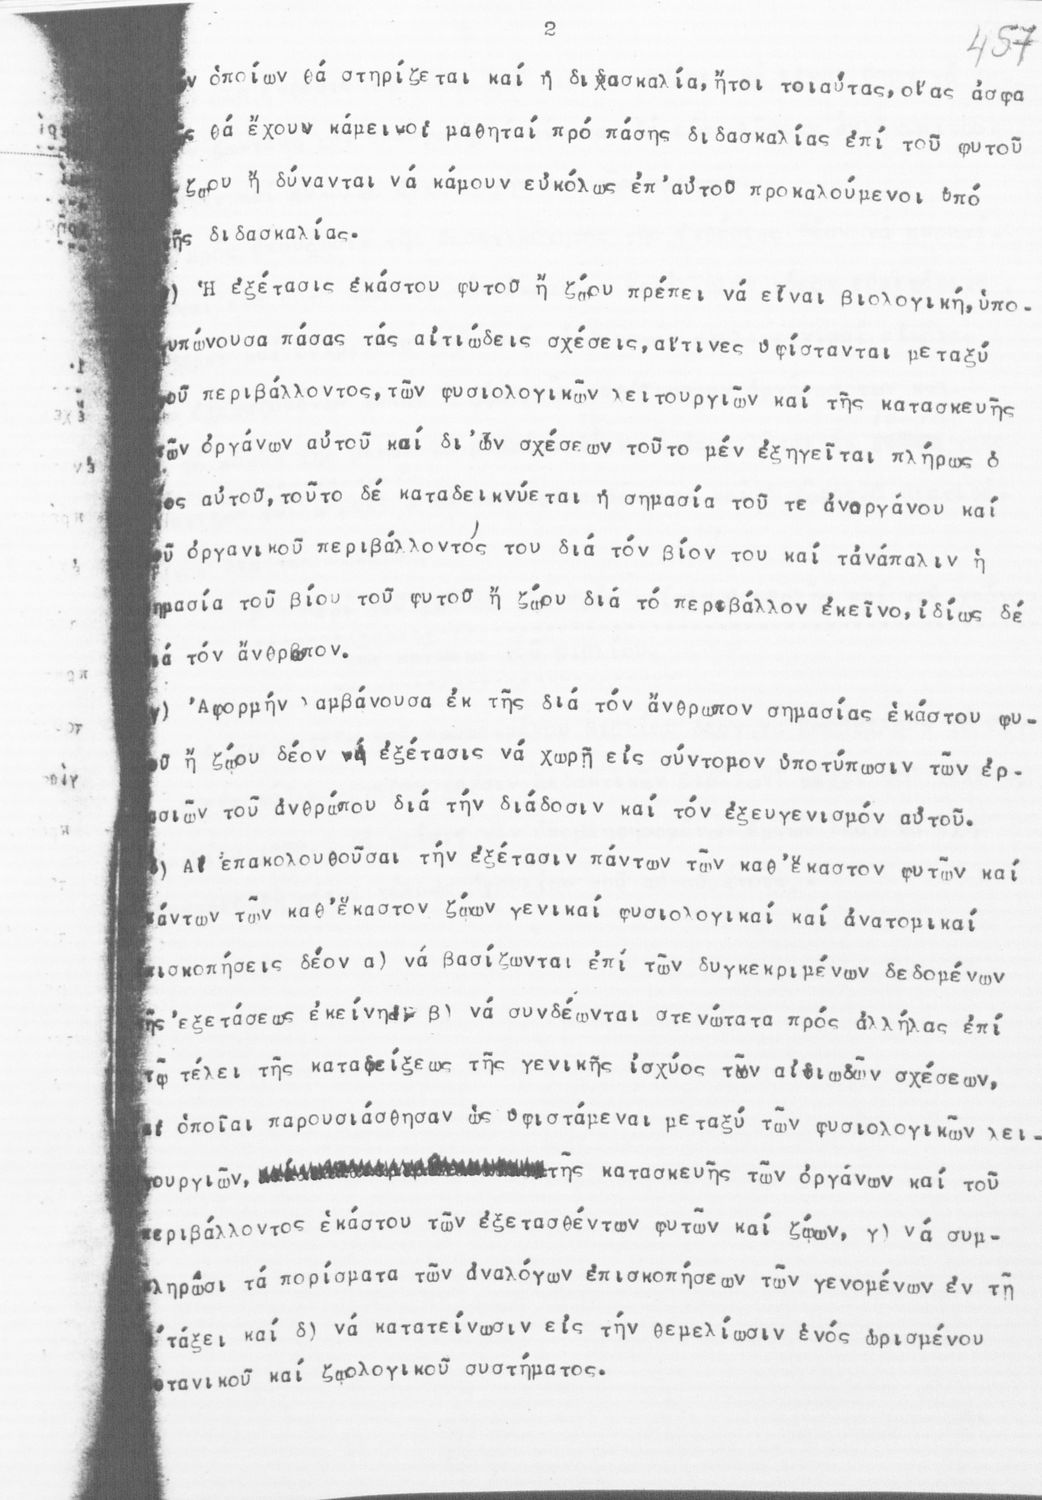 2
457
ν ὁποίων θά στηρίζεται καί ἡ διδασκαλία, ἤτοι τοιαύτας, οἵας ἀσφα
ς θά ἔχουν κάμει οἱ μαθηταί πρό πάσης διδασκαλίας ἐπί τοῦ φυτοῦ
ζῴου ἤ δύνανται νά κάμουν εὐκόλως ἐπ'αὐτοῦ προκαλούμενοι ὑπό
ῆς διδασκαλίας.
) Ἡ ἐξέτασις ἑκάστου φυτοῦ ἤ ζῴου πρέπει νά εἶναι βιολογική, ὑπο-
υπώνουσα πάσας τάς αἰτιώδεις σχέσεις, αἵτινες ὑφίστανται μεταξύ
οῦ περιβάλλοντος, τῶν φυσιολογικῶν λειτουργιῶν καί τῆς κατασκευῆς
τῶν ὀργάνων αὐτοῦ καί δι'ὧν σχέσεων τοῦτο μέν ἐξηγεῖται πλήρως ὁ
ος αὐτοῦ, τοῦτο δέ καταδεικνύεται ἡ σημασία τοῦ τε ἀνοργάνου καί
οῦ ὀργανικοῦ περιβάλλοντός του διά τόν βίον του καί τἀνάπαλιν ἡ
ημασία τοῦ βίου τοῦ φυτοῦ ἤ ζῴου διά τό περιβάλλον ἐκεῖνο, ἰδίως δέ
ιά τόν ἄνθρωπον.
γ) Ἀφορμήν λαμβάνουσα ἐκ τῆς διά τόν ἄνθρωπον σημασίας ἑκάστου φυ-
οῦ ἤ ζῴου δέον ἡ ἐξέτασις νά χωρῇ εἰς σύντομον ὑποτύπωσιν τῶν ἐρ-
ασιῶν τοῦ ἀνθρώπου διά τήν διάδοσιν καί τόν ἐξευγενισμόν αὐτοῦ.
) Αἱ ἐπακολουθοῦσαι τήν ἐξέτασιν πάντων τῶν καθ'ἕκαστον φυτῶν καί
πάντων τῶν καθ'ἕκαστον ζῴων γενικαί φυσιολογικαί καί ἀνατομικαί
πισκοπήσεις δέον α) νά βασίζωνται ἐπί τῶν δυγκεκριμένων δεδομένων
τῆς ἐξετάσεως ἐκείνης β) νά συνδέωνται στενώτατα πρός ἀλλήλας ἐπί
τῷ τέλει τῆς καταδείξεως τῆς γενικῆς ἰσχύος τῶν αἰτιωδῶν σχέσεων,
αἱ ὁποῖαι παρουσιάσθησαν ὡς ὑφιστάμεναι μεταξύ τῶν φυσιολογικῶν λει-
τουργιῶν, τῆς κατασκευῆς τῶν ὀργάνων καί τοῦ
περιβάλλοντος ἑκάστου τῶν ἐξετασθέντων φυτῶν καί ζῴων, γ) νά συμ-
ληρῶσι τά πορίσματα τῶν ἀναλόγων ἐπισκοπήσεων τῶν γενομένων ἐν τῇ
τάξει καί δ) νά κατατείνωσιν εἰς τήν θεμελίωσιν ἑνός ὡρισμένου
οτανικοῦ καί ζῳολογικοῦ συστήματος.